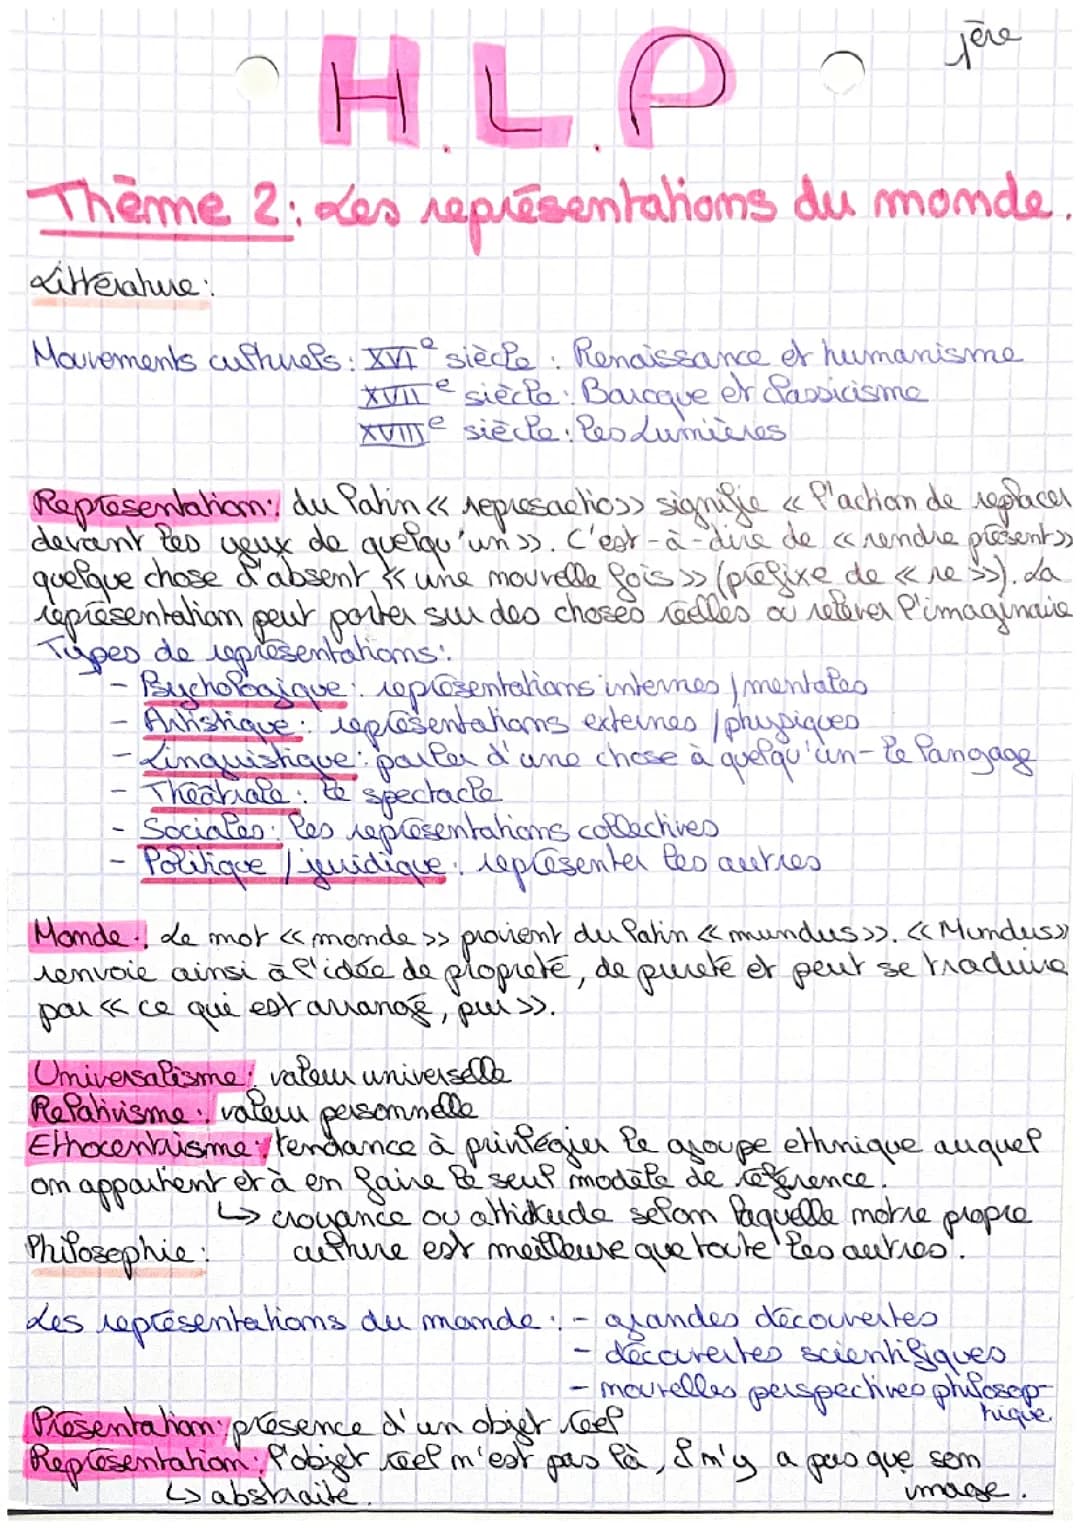 1ère
H.L.P
Thème 2: Les représentations du monde.
Littérature:
Mouvements culturels: XVIe siècle: Renaissance et humanisme
XVIIe siècle: Baroque et classicisme
XVIIIe siècle: les Lumières
Représentation: du latin << represaetio >> signifie << l'action de replacer
devant les yeux de quelqu'un >>. C'est-à-dire de << rendre présent >>
quelque chose d'absent << une nouvelle fois >> (préfixe de << re >>). La
représentation peut porter sur des choses réelles ou relever l'imaginaire
Types de représentations:
- Psychologique: représentations internes / mentales
- Artistique: représentations externes / physiques
- Linguistique: parler d'une chose à quelqu'un - le langage
- Théâtrale: le spectacle
- Sociales: les représentations collectives
- Politique / juridique: représenter les autres
Monde: Le mot << monde >> provient du latin << mundus >>. << Mundus >>
renvoie ainsi à l'idée de propreté, de pureté et peut se traduire
par << ce qui est arrangé, pur >>.
Universalisme: valeur universelle
Relativisme: valeur personnelle
Ethocentrisme: tendance à privilégier le groupe ethnique auquel
on appartient et à en faire le seul modèle de référence.
↳ croyance ou attitude selon laquelle notre propre
culture est meilleure que toute les autres.
Philosophie:
Les représentations du monde: - grandes découvertes
- découvertes scientifiques
- nouvelles perspectives philosop-
hique
Présentation: présence d'un objet réel
Représentation: l'objet réel n'est pas là, il n'y a pas que son
image.
↳ abstraite.